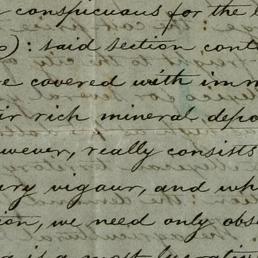 conspicuous for the
: said section cont
e covered with imm
ir rich mineral depo
owever, really consists
ry vigaur, and wh
ion, we need only obs
is a most lucrativ